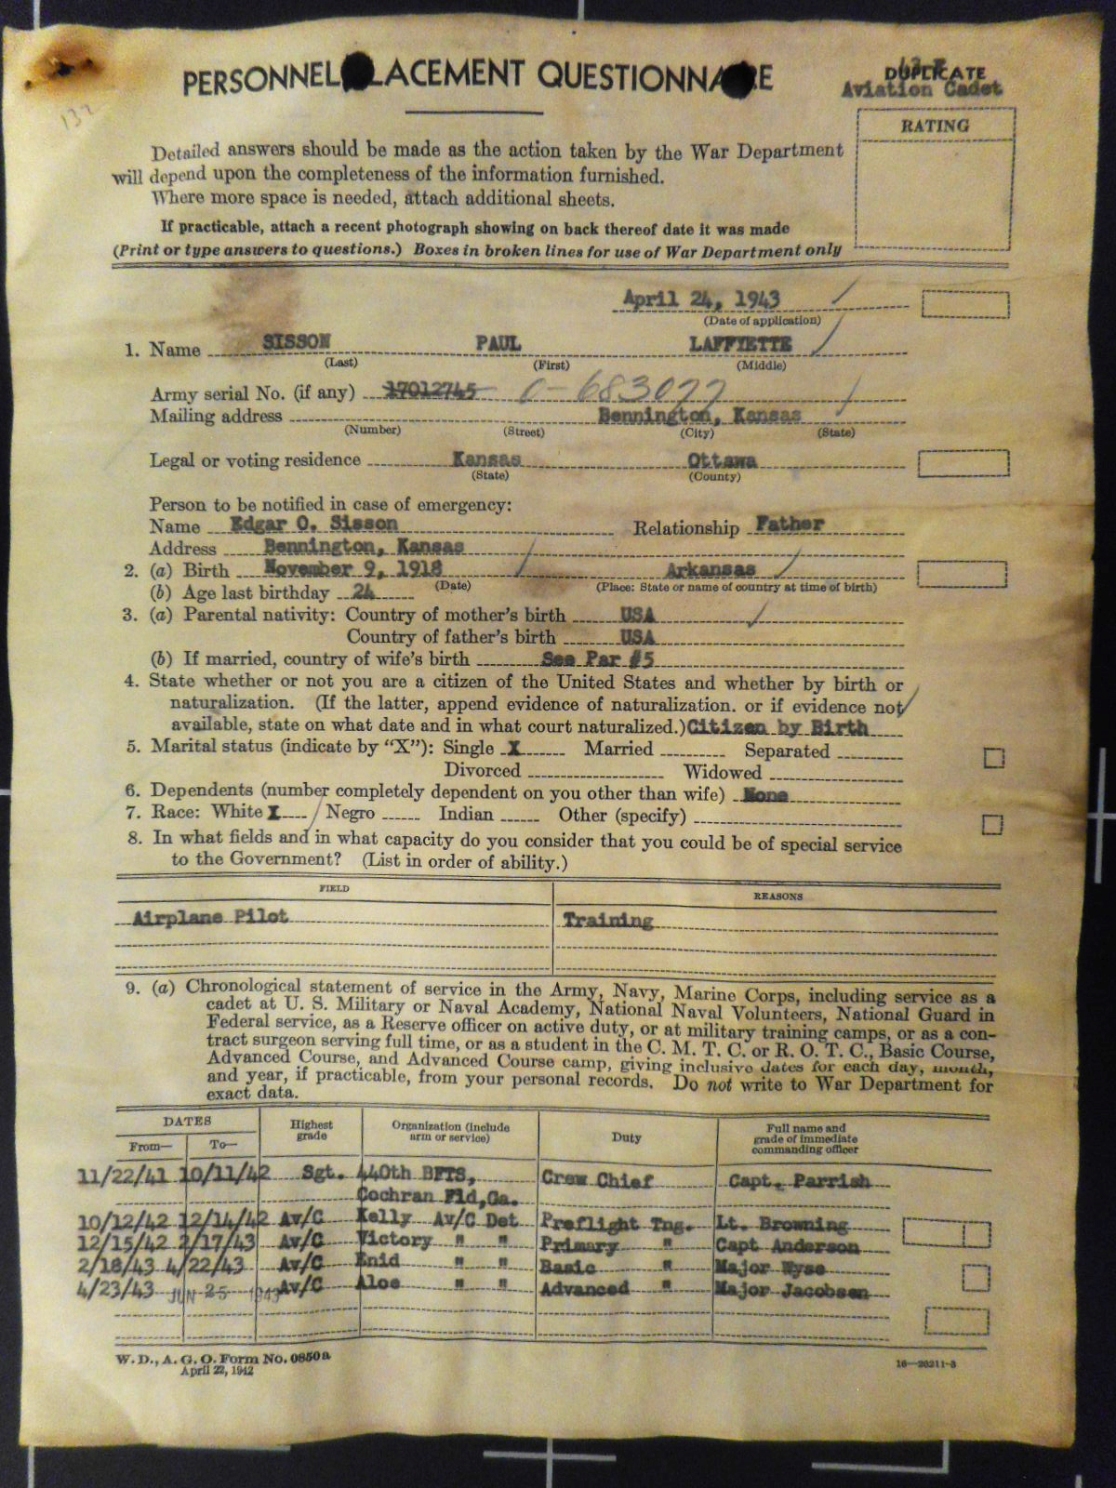 PERSONNEL LACEMENT QUESTIONNA E
DUPLICATE
Aviation Cadet
132
RATING
Detailed answers should be made as the action taken by the War Department
will depend upon the completeness of the information furnished.
Where more space is needed, attach additional sheets.
If practicable, attach a recent photograph showing on back thereof date it was made
(Print or type answers to questions.) Boxes in broken lines for use of War Department only
April 24, 1943
(Date of application)
1. Name SISSON PAUL LAFFYETTE
(Last) (First) (Middle)
Army serial No. (if any) 17012745 O-683077
Mailing address Bennington, Kansas
(Number) (Street) (City) (State)
Legal or voting residence Kansas Ottawa
(State) (County)
Person to be notified in case of emergency:
Name Edgar O. Sisson Relationship Father
Address Bennington, Kansas
2. (a) Birth November 9, 1918 Arkansas
(Date) (Place: State or name of country at time of birth)
(b) Age last birthday 24
3. (a) Parental nativity: Country of mother's birth USA
Country of father's birth USA
(b) If married, country of wife's birth See Par #5
4. State whether or not you are a citizen of the United States and whether by birth or
naturalization. (If the latter, append evidence of naturalization. or if evidence not
available, state on what date and in what court naturalized.) Citizen by Birth
5. Marital status (indicate by "X"): Single X Married Separated
Divorced Widowed
6. Dependents (number completely dependent on you other than wife) None
7. Race: White X Negro Indian Other (specify)
8. In what fields and in what capacity do you consider that you could be of special service
to the Government? (List in order of ability.)
FIELD REASONS
Airplane Pilot Training
9. (a) Chronological statement of service in the Army, Navy, Marine Corps, including service as a
cadet at U. S. Military or Naval Academy, National Naval Volunteers, National Guard in
Federal service, as a Reserve officer on active duty, or at military training camps, or as a con-
tract surgeon serving full time, or as a student in the C. M. T. C. or R. O. T. C., Basic Course,
Advanced Course, and Advanced Course camp, giving inclusive dates for each day, month,
and year, if practicable, from your personal records. Do not write to War Department for
exact data.
DATES
From— To— Highest grade Organization (include arm or service) Duty Full name and grade of immediate commanding officer
11/22/41 10/11/42 Sgt. 440th BFTS, Crew Chief Capt. Parrish
Cochran Fld,Ga.
10/12/42 12/14/42 Av/C Kelly Av/C Det Preflight Tng. Lt. Browning
12/15/42 2/17/43 Av/C Victory " " Primary " Capt Anderson
2/18/43 4/22/43 Av/C Enid " " Basic " Major Wyse
4/23/43 JUN 25 1943 Av/C Aloe " " Advanced " Major Jacobsen
W. D., A. G. O. Form No. 0850a
April 22, 1942
16—26211-3